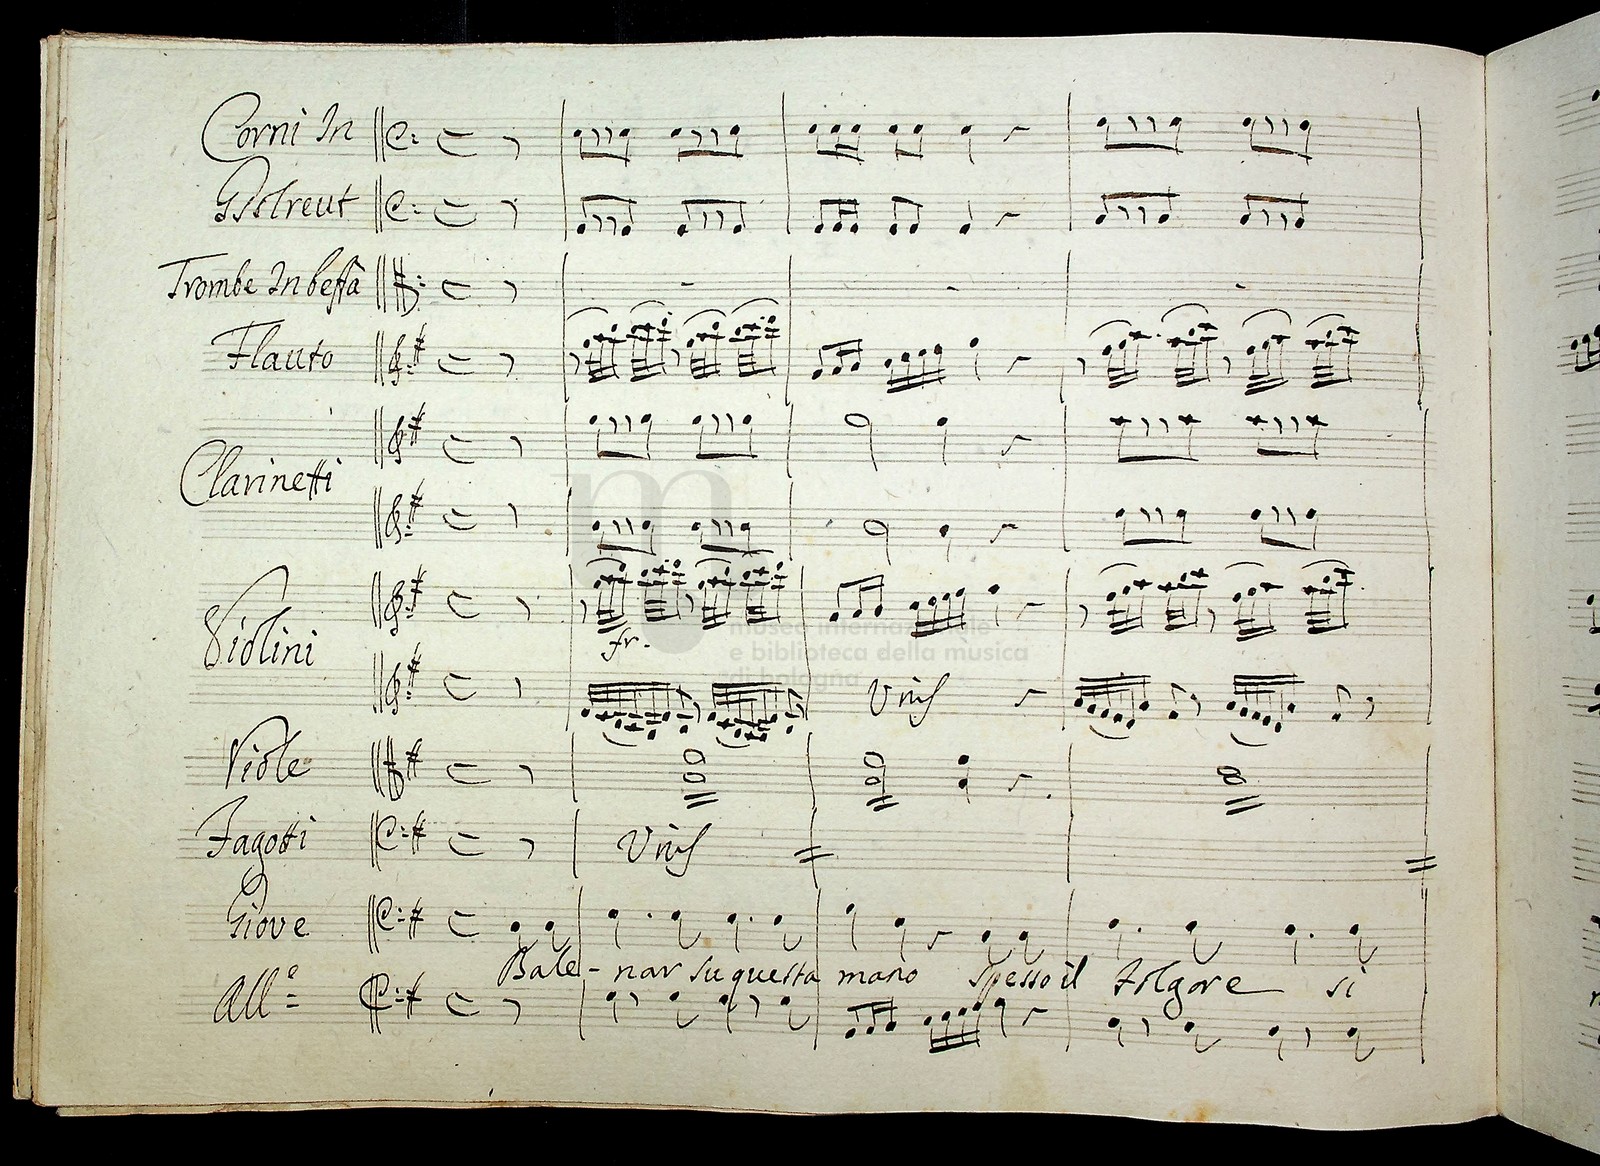 Corni In
Gsolreut
Trombe In beffà
Flauto
Clarinetti
Violini
fr.
museo internazionale
e biblioteca della musica
di bologna
Unis
Viole
Fagotti
Unis
Giove
Bale - nar su questa mano spesso il Folgore si
All.º